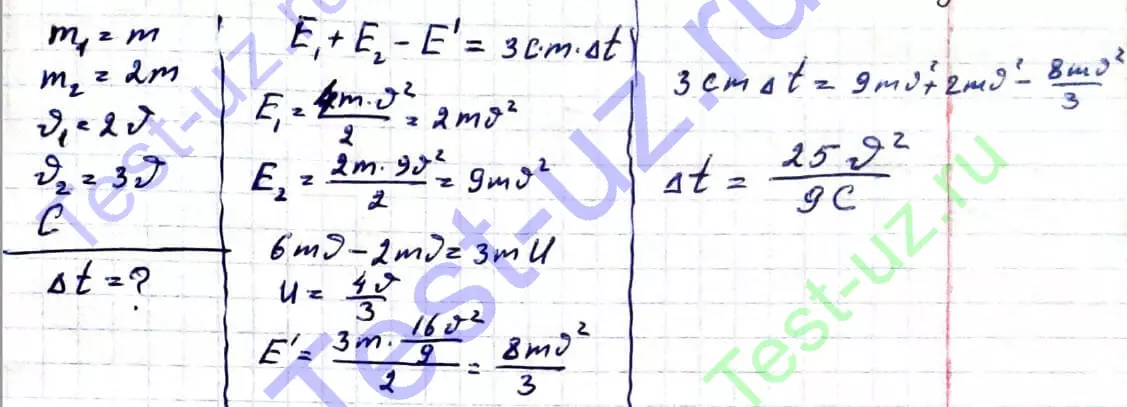 m₁ = m
m₂ = 2m
ϑ₁ = 2ϑ
ϑ₂ = 3ϑ
C
Δt = ?
E₁ + E₂ − E' = 3c·m·Δt
E₁ = 4m·ϑ²/2 = 2mϑ²
E₂ = 2m·9ϑ²/2 = 9mϑ²
6mϑ − 2mϑ = 3mU
U = 4ϑ/3
E' = (3m·16ϑ²/9)/2 = 8mϑ²/3
3cmΔt = 9mϑ² + 2mϑ² − 8mϑ²/3
Δt = 25ϑ²/9C
Test-uz.ru
Test-uz.ru
Test-uz.ru
Test-uz.ru